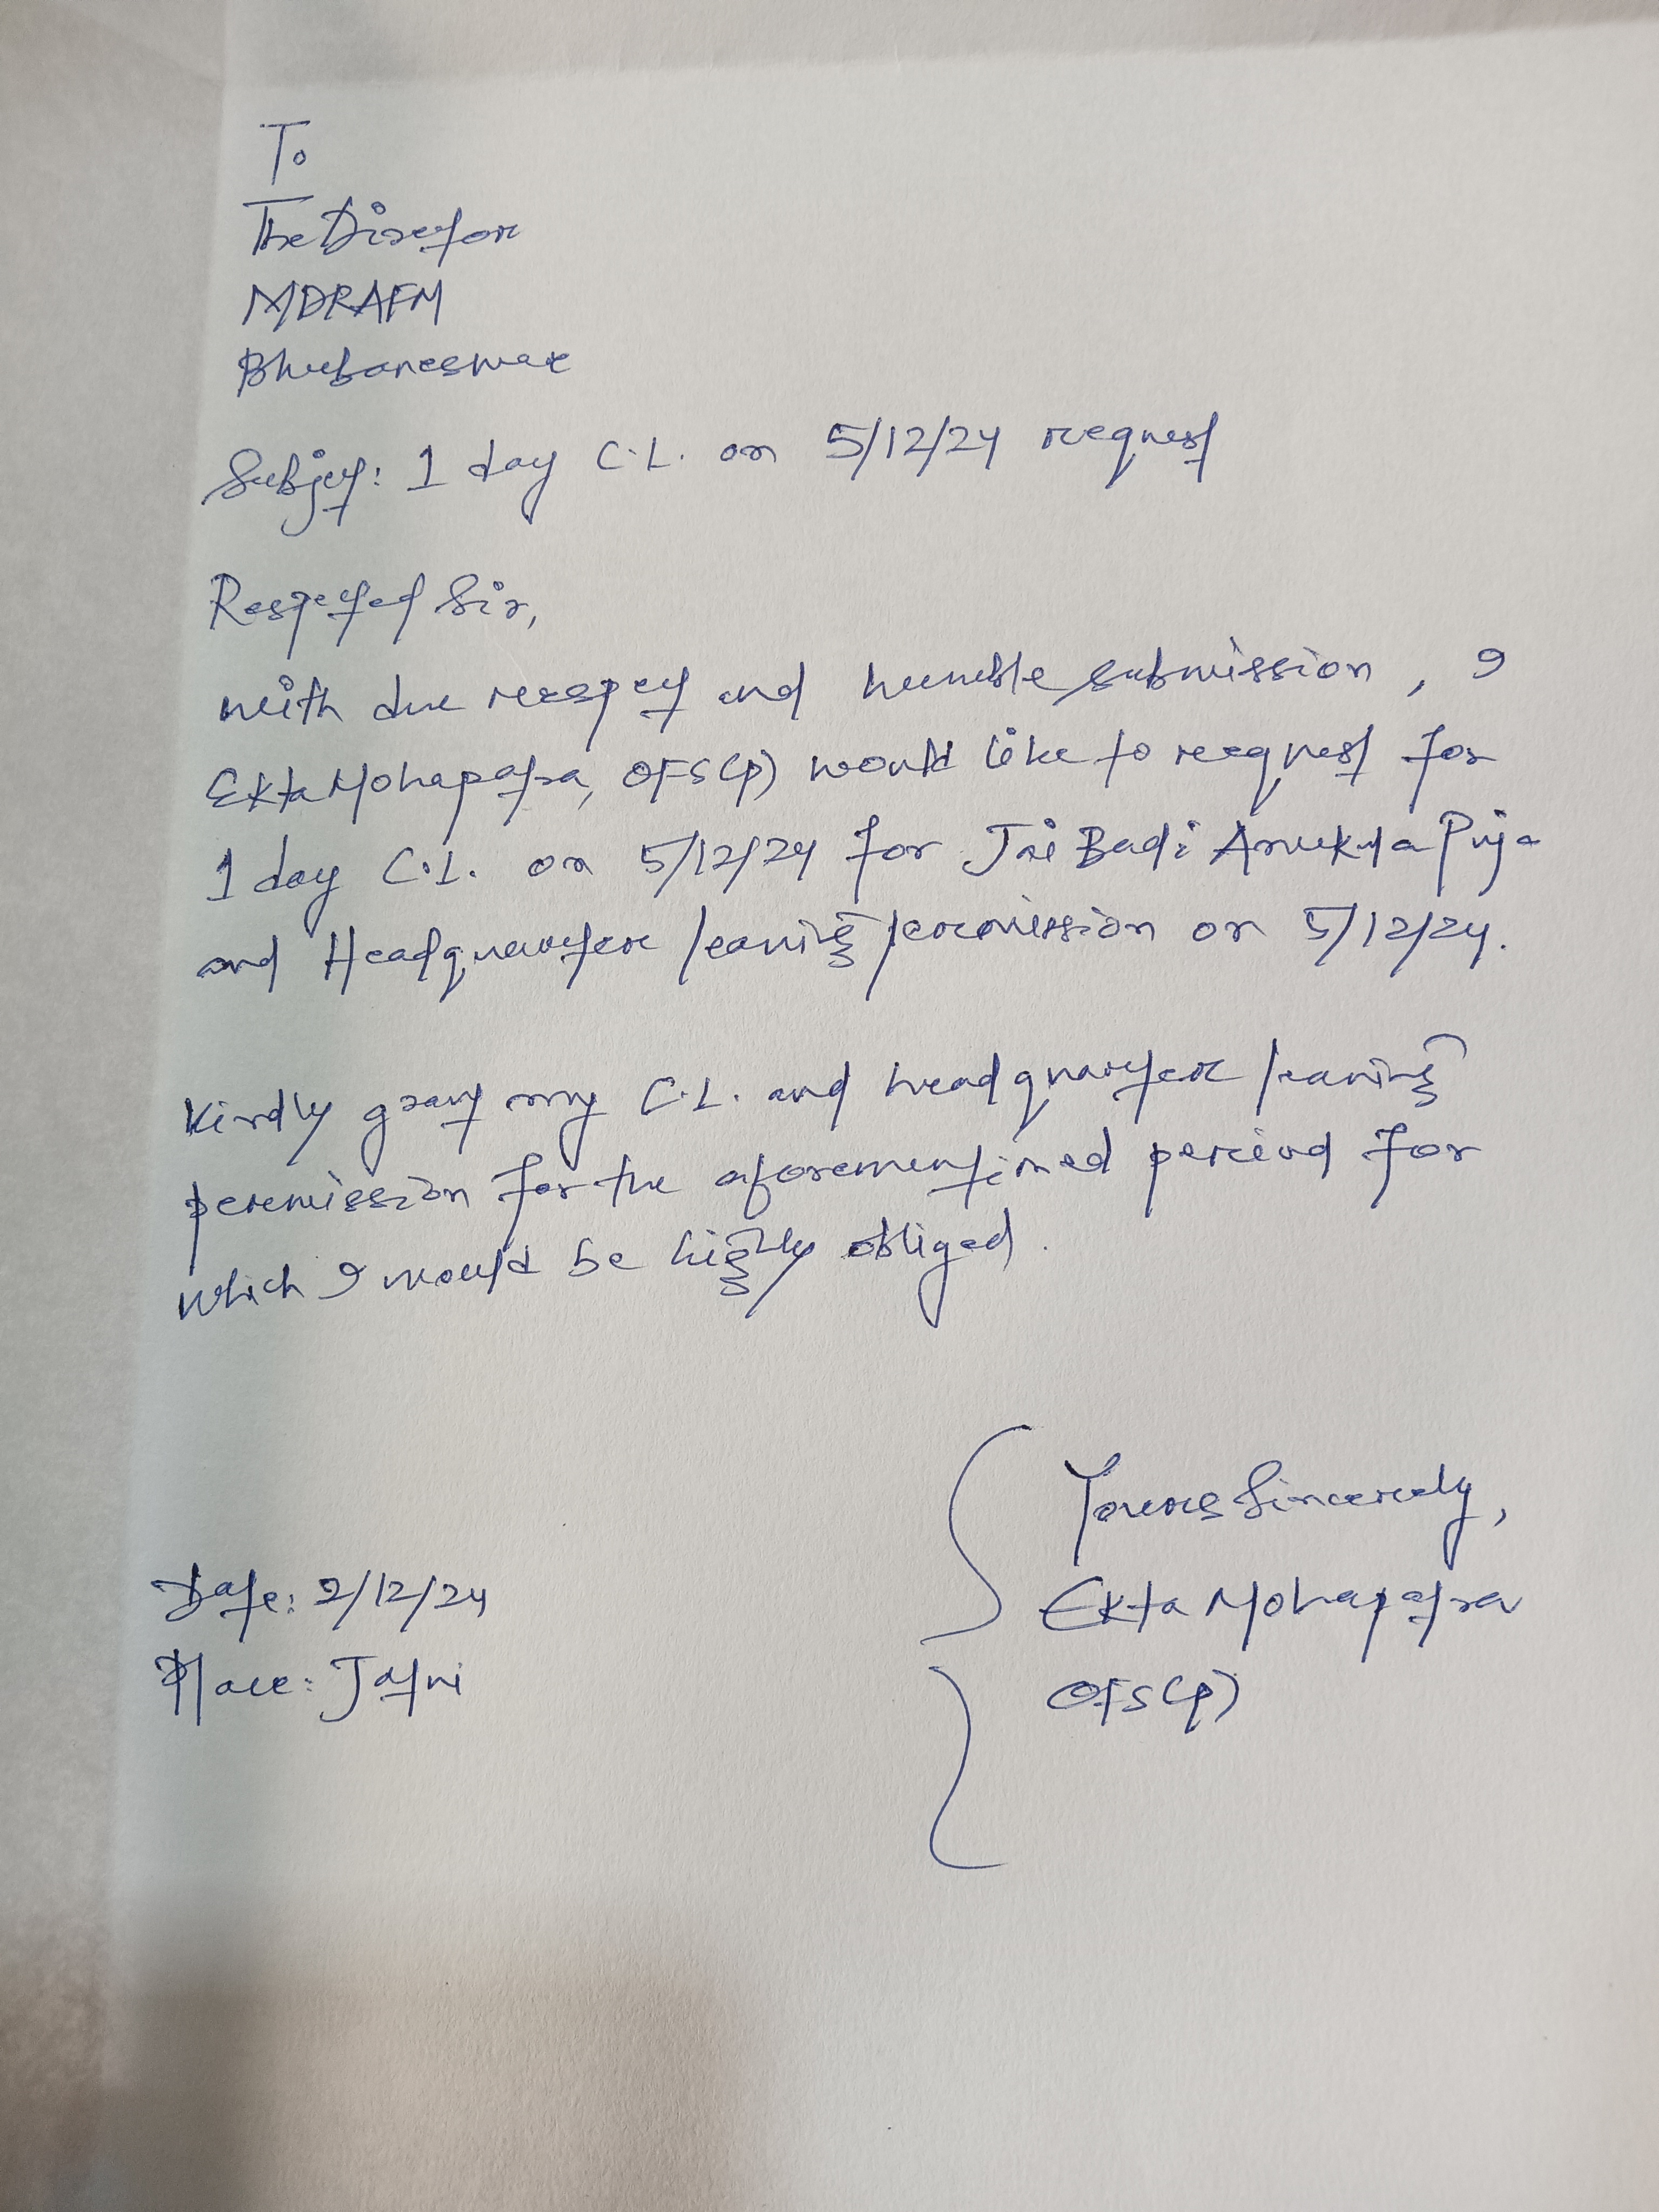 To
The Director
MDRAFM
Bhubaneswar
Subject: 1 day C.L. on 5/12/24 request
Respected Sir,
with due respect and humble submission, I
Ekta Mohapatra, OFS(P) would like to request for
1 day C.L. on 5/12/24 for Jai Badi Puja
and Headquarter leaving permission on 5/12/24.
Kindly grant my C.L. and headquarter leaving
permission for the aforementioned period for
which I would be highly obliged.
Yours Sincerely,
Date: 2/12/24 Ekta Mohapatra
Place: Jatni OFS(P)